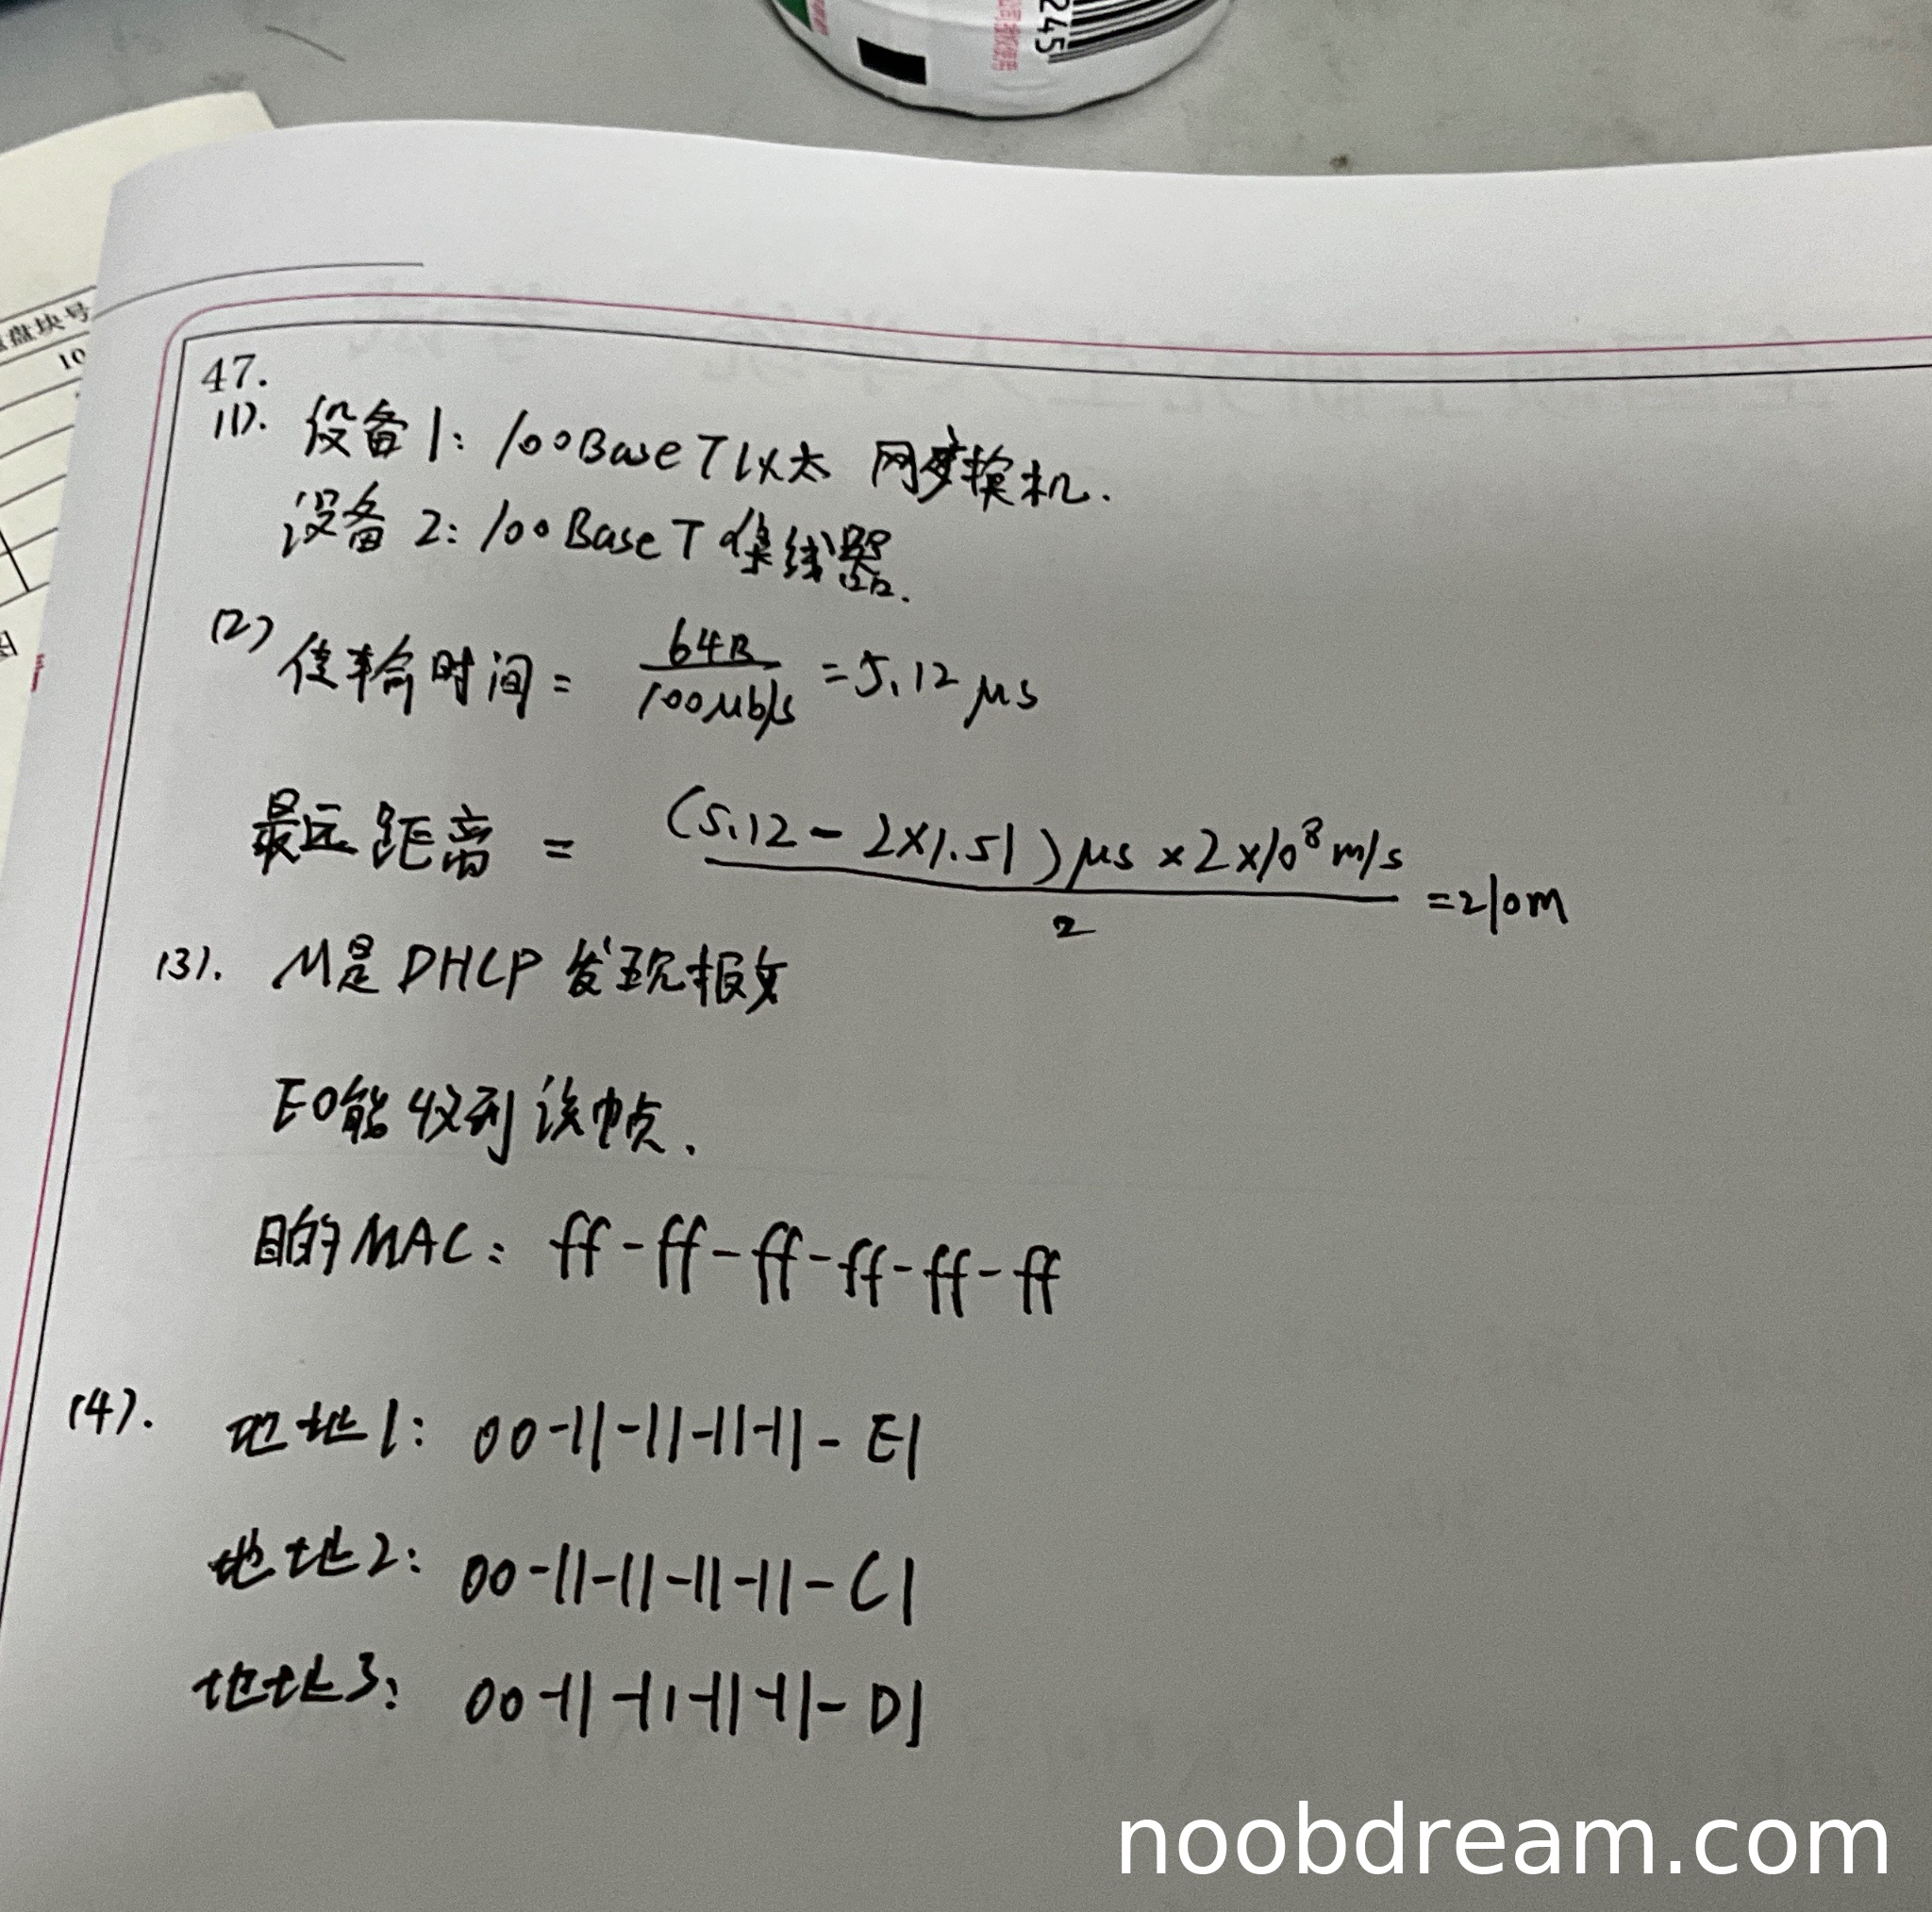 245
盘块号
10
47.
(1). 设备1: 100BaseT以太网交换机.
设备2: 100BaseT集线器.
(2) 传输时间 = 64B / 100Mb/s = 5.12 μs
最远距离 = (5.12 - 2×1.51) μs × 2×10⁸ m/s / 2 = 210m
(3). M是DHCP发现报文
E0能收到该帧.
目的MAC: ff-ff-ff-ff-ff-ff
(4). 地址1: 00-11-11-11-11-E1
地址2: 00-11-11-11-11-C1
地址3: 00-11-11-11-11-D1
noobdream.com